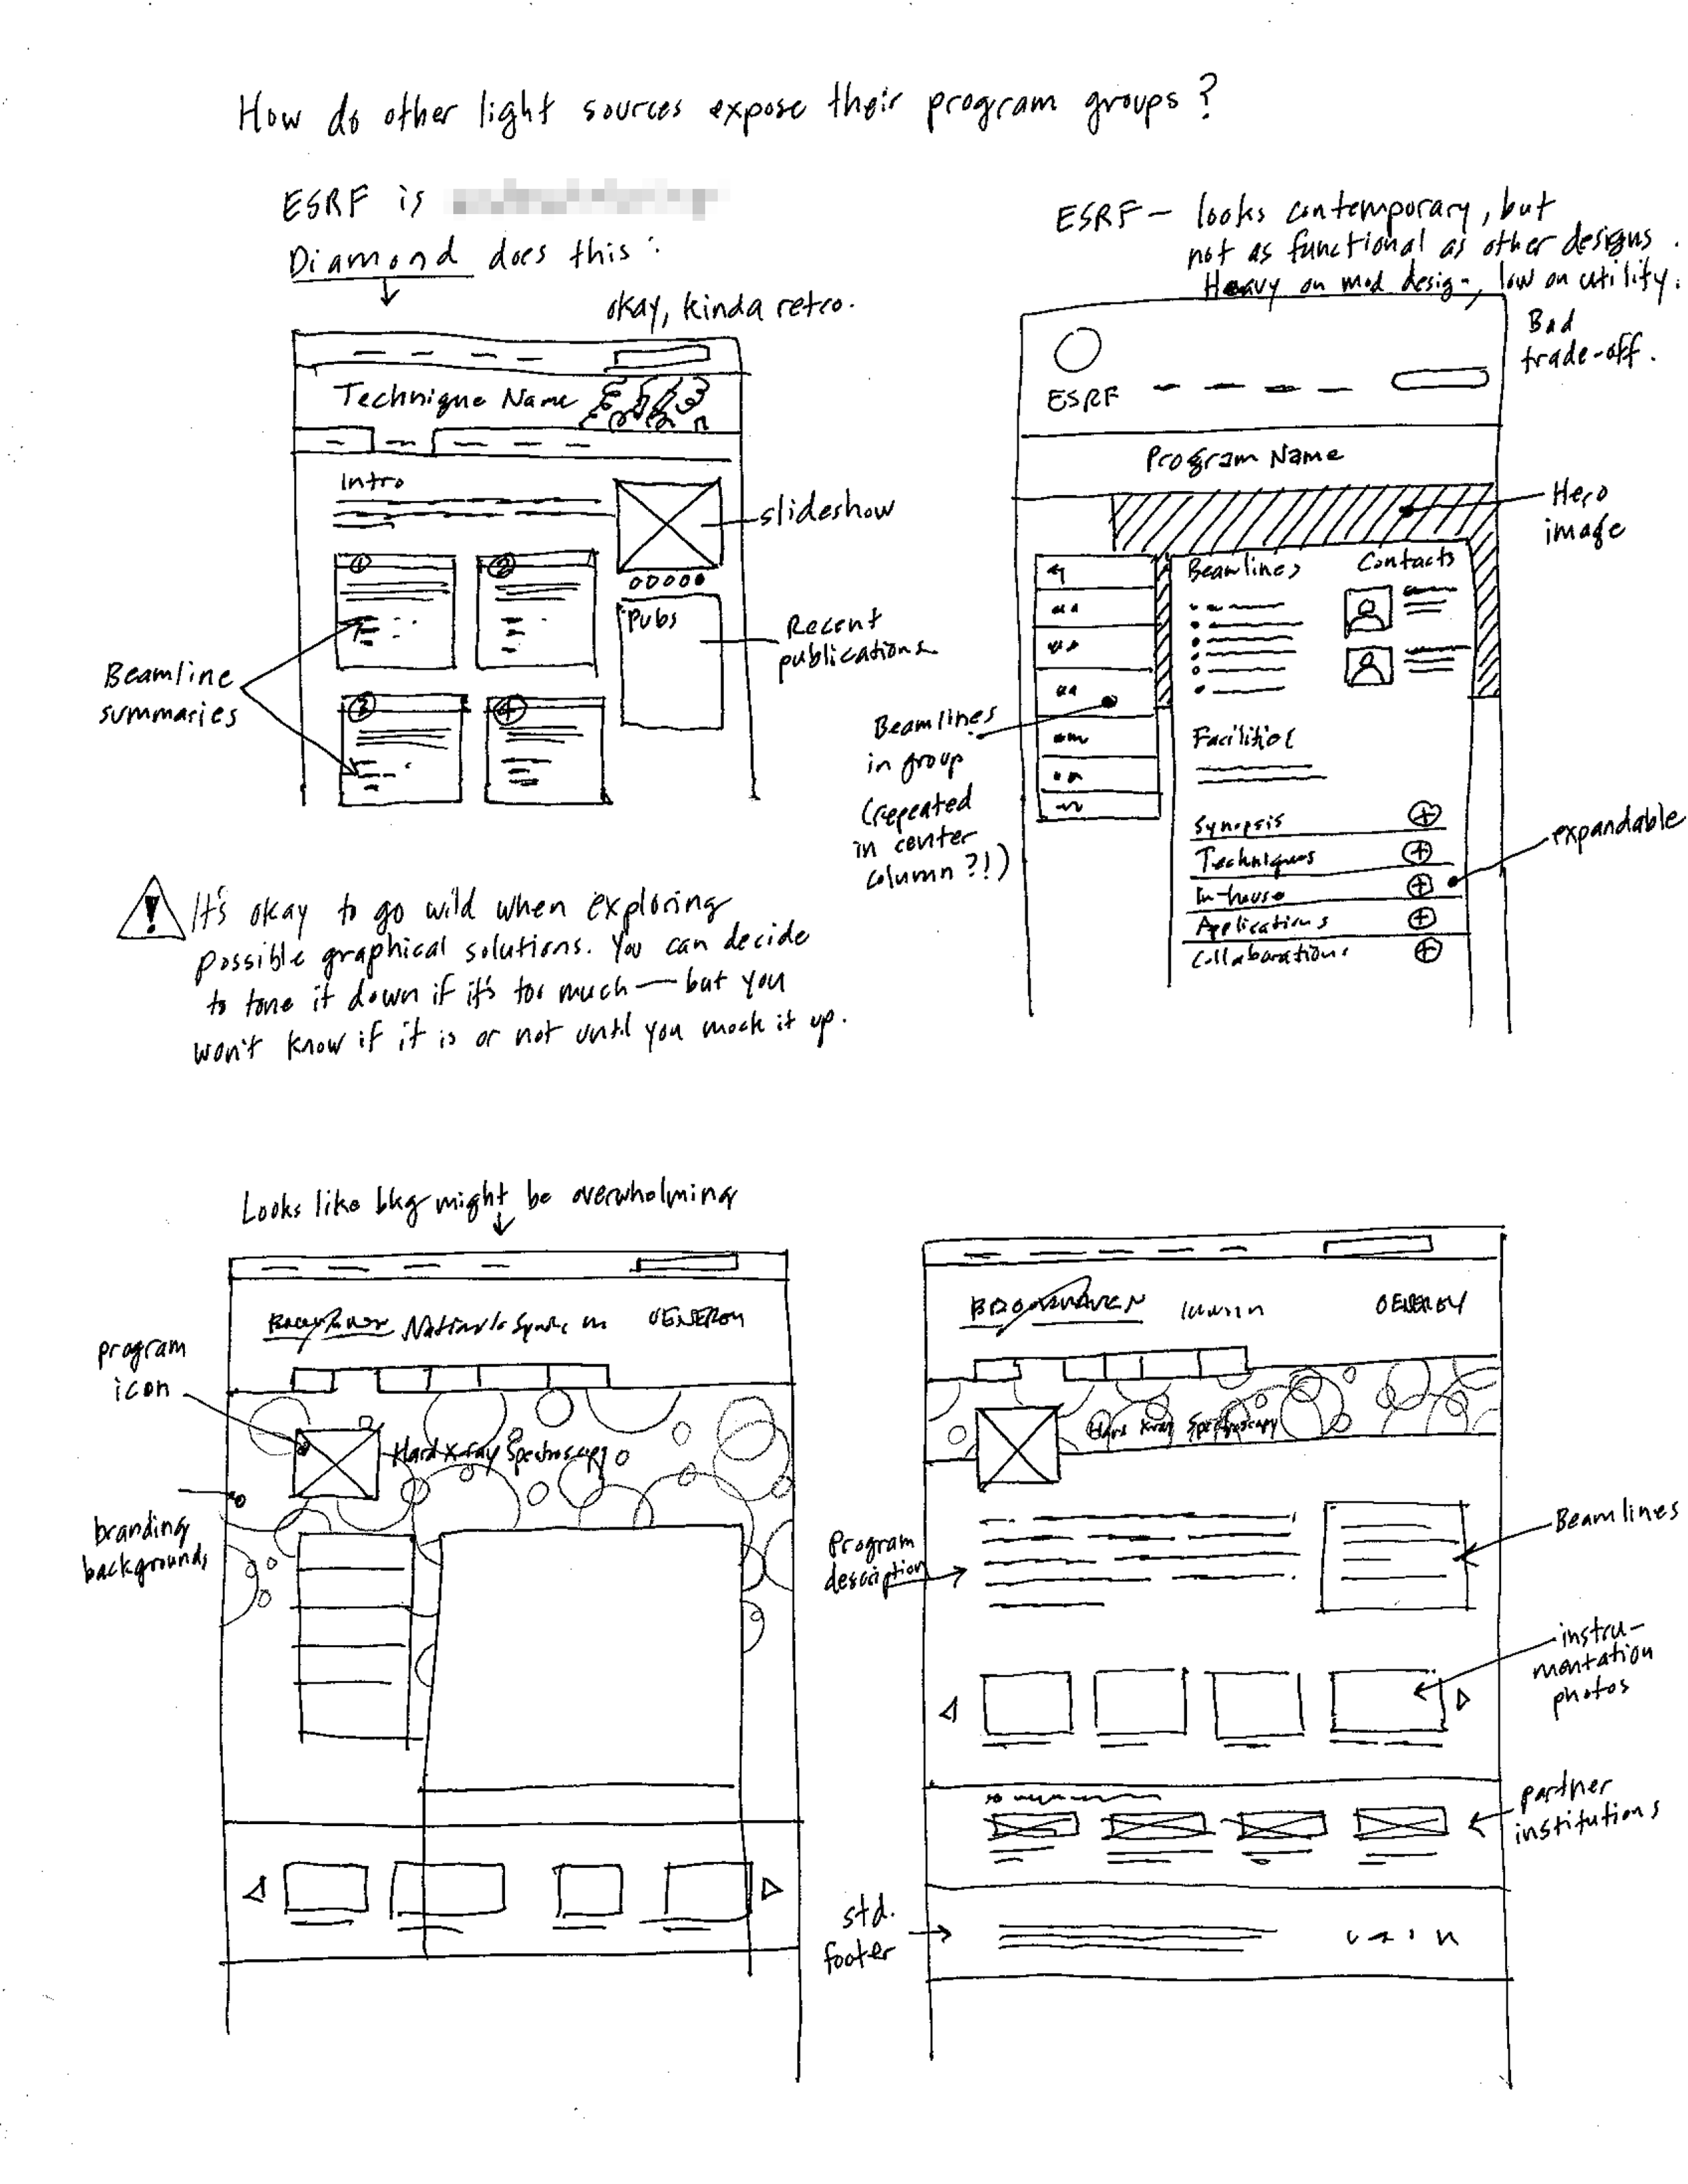 How do other light sources expose their program groups?
ESRF is
Diamond does this:
okay, kinda retro.
Technique Name
Intro
1
2
3
4
Pubs
slideshow
Recent
publications
Beamline
summaries
ESRF— looks contemporary, but
not as functional as other designs.
Heavy on mod design, low on utility.
Bad
trade-off.
ESRF
Program Name
Hero
image
Beamlines
Contacts
Facilities
Synopsis
Techniques
In-house
Applications
Collaborations
expandable
Beamlines
in group
(repeated
in center
column?!)
It's okay to go wild when exploring
possible graphical solutions. You can decide
to tone it down if it's too much—but you
won't know if it is or not until you mock it up.
Looks like bkg might be overwhelming
ENERGY
program
icon
Hard X-ray Spectroscopy
branding
backgrounds
BROOKHAVEN
ENERGY
Hard X-ray Spectroscopy
Program
description
Beamlines
instru-
mentation
photos
partner
institutions
std.
footer